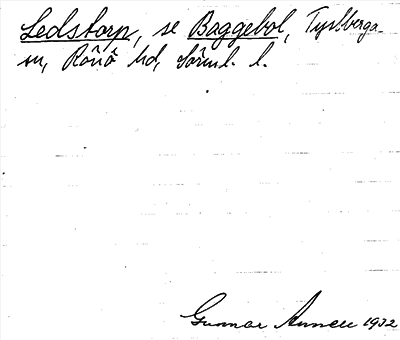 Ledstorp, se Baggebol, Tystberga
sn, Rönö hd, Sörml. l.
Gunnar Annell 1932